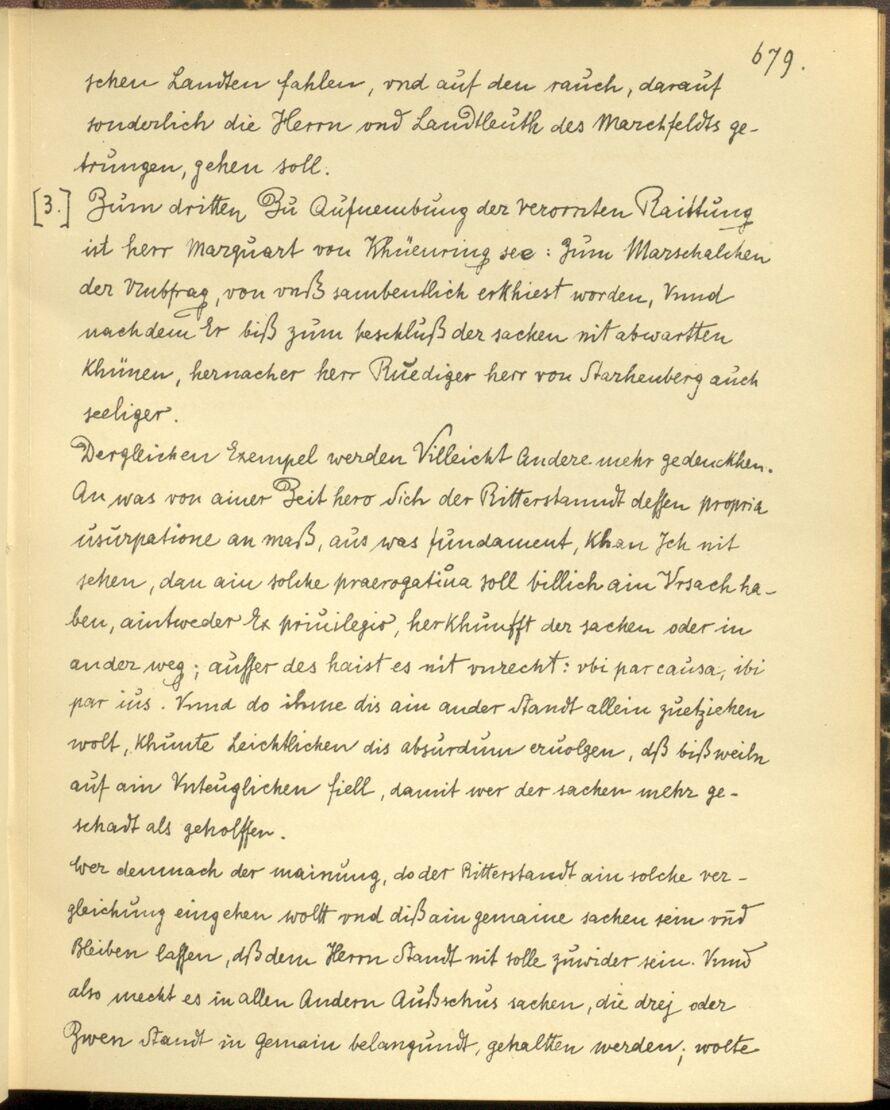 679.
schen Landten fahlen, vnd auf den rauch, darauf
sonderlich die Herrn vnd Landtleuth des Marchfeldts ge-
trungen, gehen soll.
[3.] Zum dritten Zu Aufnembung der verornten Raittung
ist herr Marquart von Khüenring see: Zum Marschalchen
der Vmbfrag, von vnß sambentlich erkhiest worden, Vnnd
nachdem Er biß zum beschluß der sachen nit abwartten
Khünen, hernacher herr Ruediger herr von Starhenberg auch
seeliger.
Dergleichen Exempel werden Villeicht Andere mehr gedenckhen.
An was von ainer Zeit hero Sich der Ritterstanndt dessen propria
usurpatione an maß, aus was fundament, Khan Ich nit
sehen, dan ain solche praerogatiua soll billich ain Vrsach ha-
ben, aintweder Ex priuilegio, herkhunfft der sachen oder in
ander weg; ausser des haist es nit vnrecht: vbi par causa, ibi
par ius. Vnnd do ihme dis ain ander Standt allein zuetziehen
wolt, Khunte Leichtlichen dis absurdum eruolgen, dß bißweiln
auf ain Vnteuglichen fiell, damit wer der sachen mehr ge-
schadt als geholffen.
Wer demnach der mainung, do der Ritterstandt ain solche ver-
gleichung eingehen wollt vnd diß ain gemaine sachen sein vnd
Bleiben lassen, dß dem Herrn Standt nit solle zuwider sein. Vnnd
also mecht es in allen Andern Außschus sachen, die drej oder
Zwen Standt in Gemain belangundt, gehaltten werden; wolte